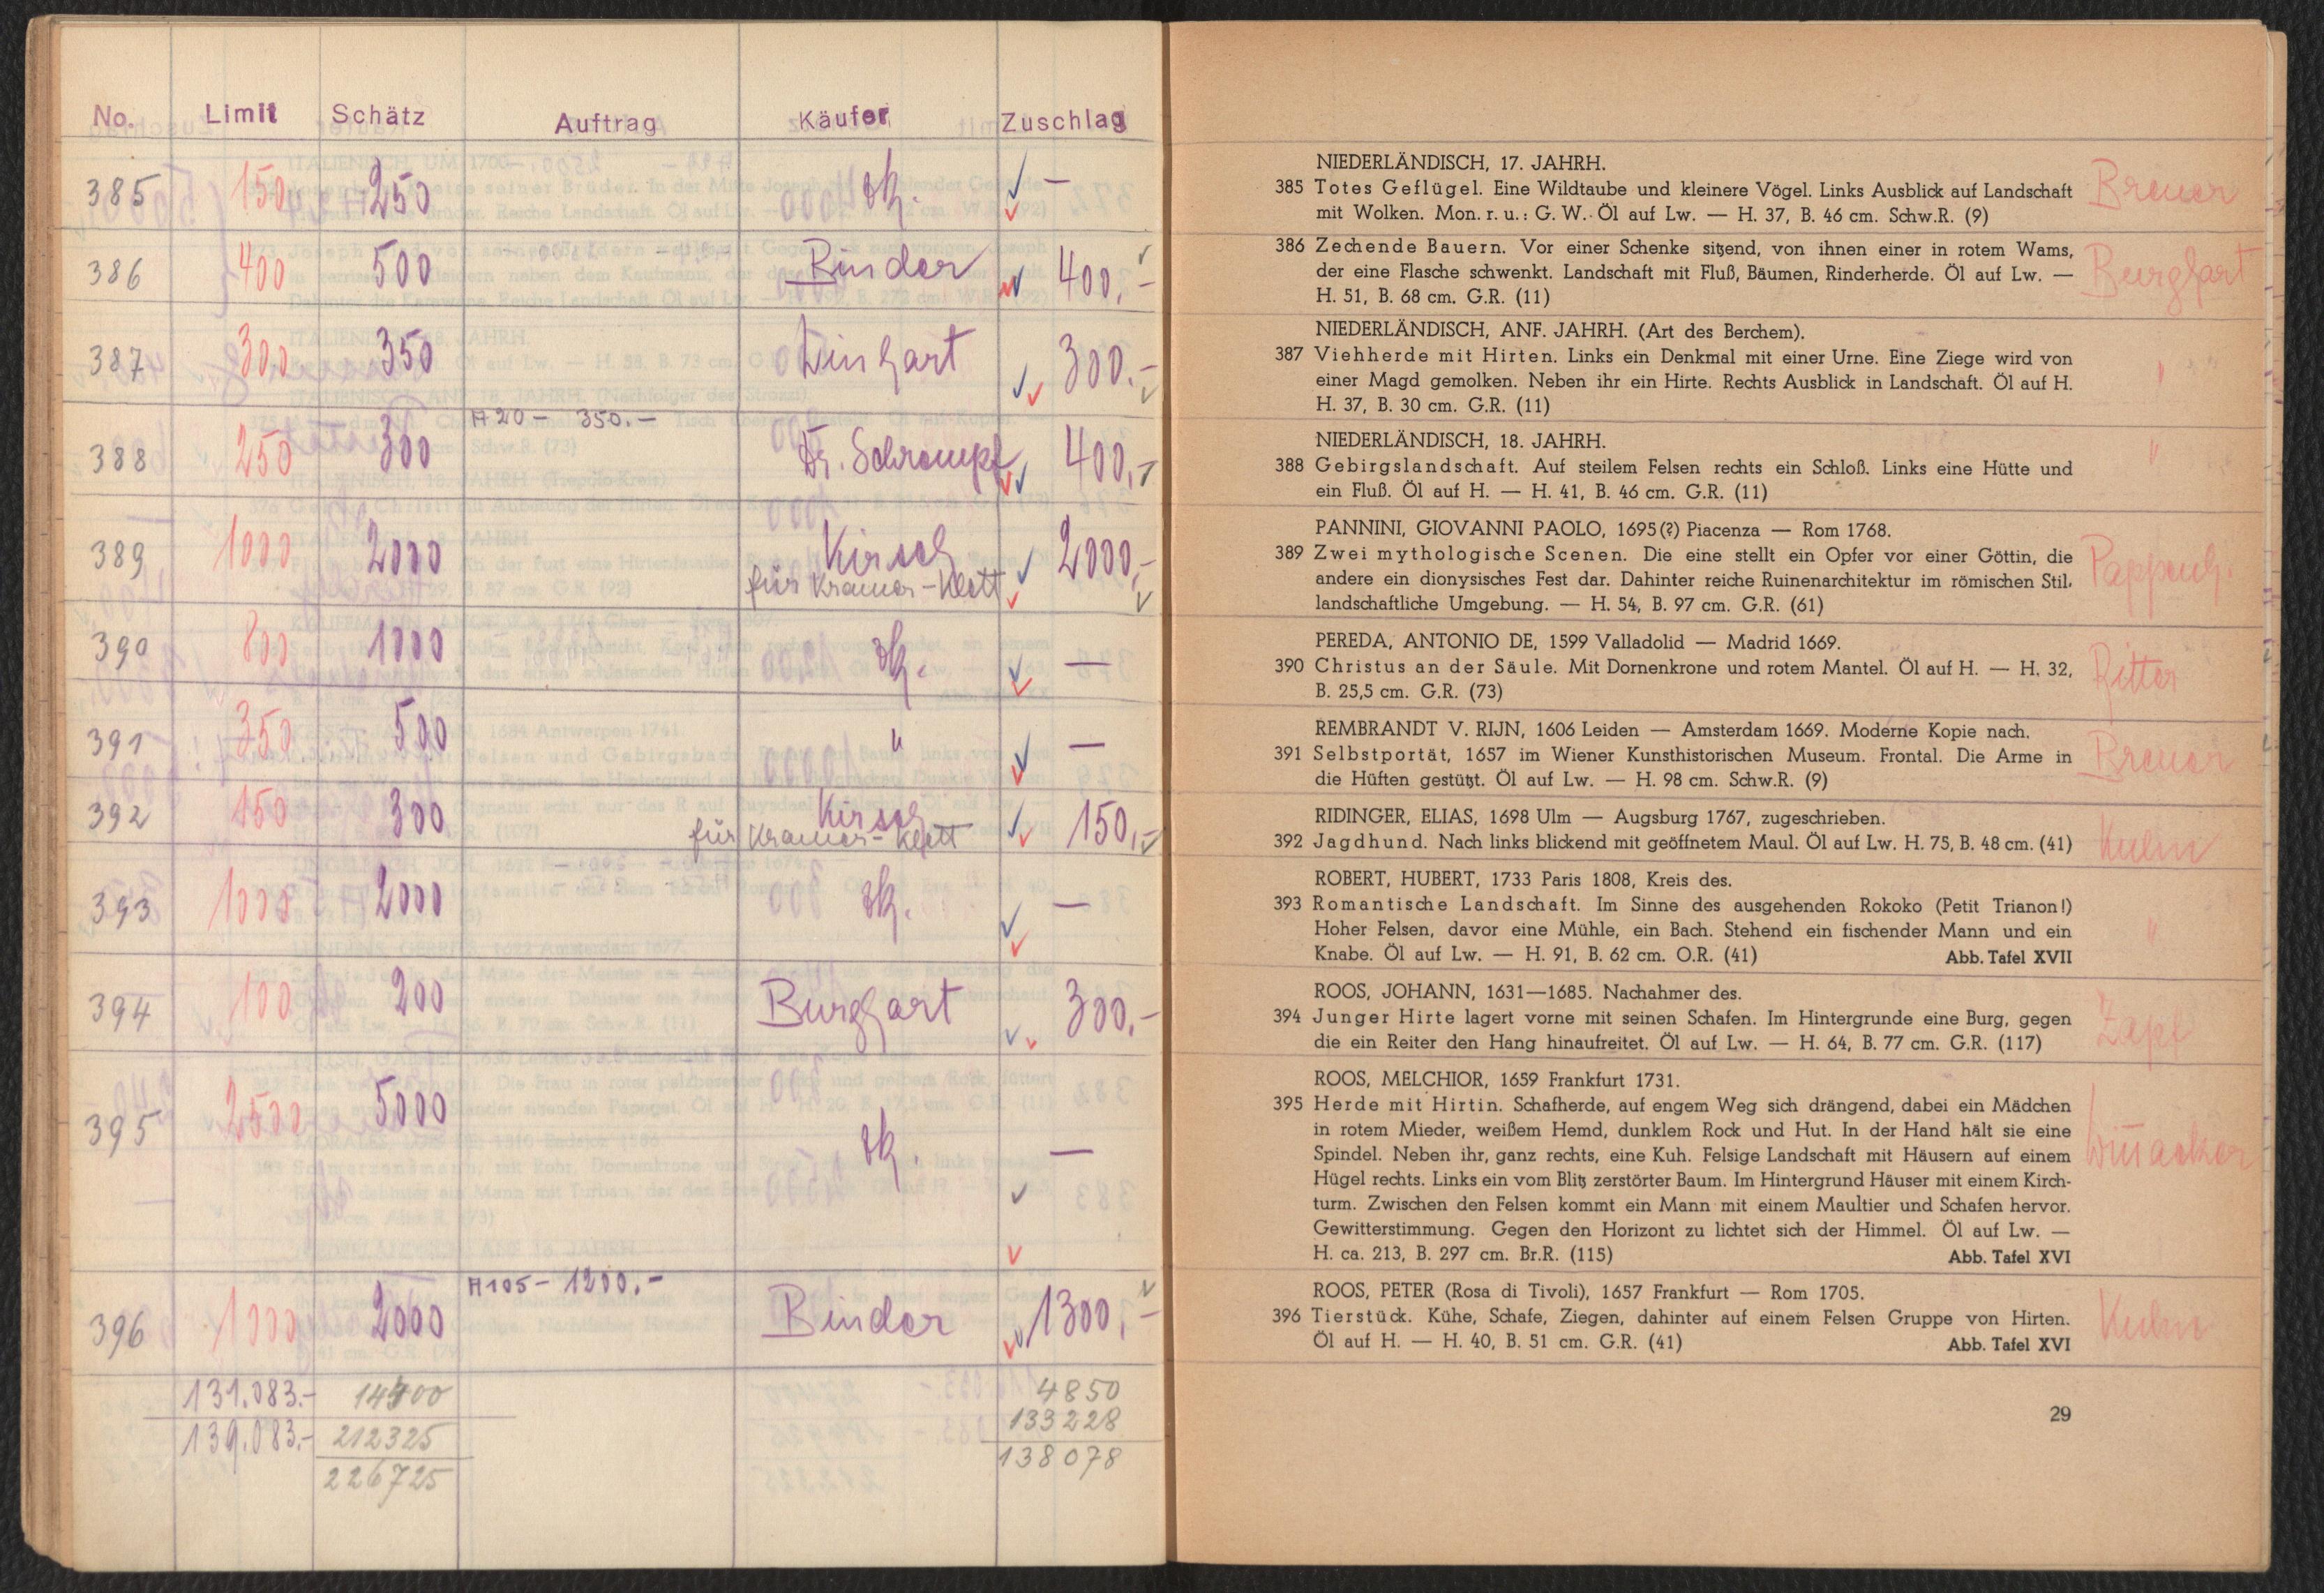 No. Limit Schätz Auftrag Käufer Zuschlag
385 150 250 —
386 400 500 Binder 400.-
387 300 350 Winhart 300.-
A 20 - 350.-
388 250 300 Dr. Schrempf 400,-
389 1000 2000 Kirsch 2000,-
für Kramer-Klett
390 800 1000 —
391 350 500 " —
392 150 300 Kirsch 150,-
für Kramer-Klett
393 1000 2000 —
394 100 200 Burghart 300,-
395 2500 5000 —
A 105 - 1200.-
396 1000 2000 Binder 1300,-
131.083.- 14400 4850
139.083.- 212325 133228
226725 138078
NIEDERLÄNDISCH, 17. JAHRH.
385 Totes Geflügel. Eine Wildtaube und kleinere Vögel. Links Ausblick auf Landschaft
mit Wolken. Mon. r. u.: G. W. Öl auf Lw. — H. 37, B. 46 cm. Schw.R. (9)
Breuer
386 Zechende Bauern. Vor einer Schenke sitzend, von ihnen einer in rotem Wams,
der eine Flasche schwenkt. Landschaft mit Fluß, Bäumen, Rinderherde. Öl auf Lw. —
H. 51, B. 68 cm. G.R. (11)
Burghart
NIEDERLÄNDISCH, ANF. JAHRH. (Art des Berchem).
387 Viehherde mit Hirten. Links ein Denkmal mit einer Urne. Eine Ziege wird von
einer Magd gemolken. Neben ihr ein Hirte. Rechts Ausblick in Landschaft. Öl auf H.
H. 37, B. 30 cm. G.R. (11)
"
NIEDERLÄNDISCH, 18. JAHRH.
388 Gebirgslandschaft. Auf steilem Felsen rechts ein Schloß. Links eine Hütte und
ein Fluß. Öl auf H. — H. 41, B. 46 cm. G.R. (11)
"
PANNINI, GIOVANNI PAOLO, 1695 (?) Piacenza — Rom 1768.
389 Zwei mythologische Scenen. Die eine stellt ein Opfer vor einer Göttin, die
andere ein dionysisches Fest dar. Dahinter reiche Ruinenarchitektur im römischen Stil,
landschaftliche Umgebung. — H. 54, B. 97 cm. G.R. (61)
PEREDA, ANTONIO DE, 1599 Valladolid — Madrid 1669.
390 Christus an der Säule. Mit Dornenkrone und rotem Mantel. Öl auf H. — H. 32,
B. 25,5 cm. G.R. (73)
Ritter
REMBRANDT V. RIJN, 1606 Leiden — Amsterdam 1669. Moderne Kopie nach.
391 Selbstportät, 1657 im Wiener Kunsthistorischen Museum. Frontal. Die Arme in
die Hüften gestützt. Öl auf Lw. — H. 98 cm. Schw.R. (9)
Breuer
RIDINGER, ELIAS, 1698 Ulm — Augsburg 1767, zugeschrieben.
392 Jagdhund. Nach links blickend mit geöffnetem Maul. Öl auf Lw. H. 75, B. 48 cm. (41)
Kulm
ROBERT, HUBERT, 1733 Paris 1808, Kreis des.
393 Romantische Landschaft. Im Sinne des ausgehenden Rokoko (Petit Trianon!)
Hoher Felsen, davor eine Mühle, ein Bach. Stehend ein fischender Mann und ein
Knabe. Öl auf Lw. — H. 91, B. 62 cm. O.R. (41) Abb. Tafel XVII
"
ROOS, JOHANN, 1631—1685. Nachahmer des.
394 Junger Hirte lagert vorne mit seinen Schafen. Im Hintergrunde eine Burg, gegen
die ein Reiter den Hang hinaufreitet. Öl auf Lw. — H. 64, B. 77 cm. G.R. (117)
Zapf
ROOS, MELCHIOR, 1659 Frankfurt 1731.
395 Herde mit Hirtin. Schafherde, auf engem Weg sich drängend, dabei ein Mädchen
in rotem Mieder, weißem Hemd, dunklem Rock und Hut. In der Hand hält sie eine
Spindel. Neben ihr, ganz rechts, eine Kuh. Felsige Landschaft mit Häusern auf einem
Hügel rechts. Links ein vom Blitz zerstörter Baum. Im Hintergrund Häuser mit einem Kirch-
turm. Zwischen den Felsen kommt ein Mann mit einem Maultier und Schafen hervor.
Gewitterstimmung. Gegen den Horizont zu lichtet sich der Himmel. Öl auf Lw. —
H. ca. 213, B. 297 cm. Br.R. (115) Abb. Tafel XVI
ROOS, PETER (Rosa di Tivoli), 1657 Frankfurt — Rom 1705.
396 Tierstück. Kühe, Schafe, Ziegen, dahinter auf einem Felsen Gruppe von Hirten.
Öl auf H. — H. 40, B. 51 cm. G.R. (41) Abb. Tafel XVI
Kulm
29